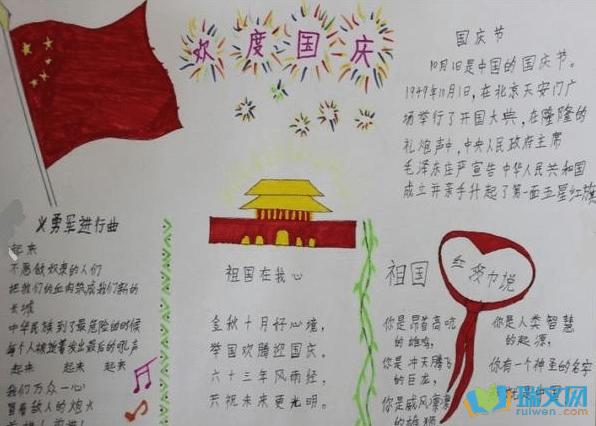 欢度国庆
国庆节
10月1日是中国的国庆节。
1949年10月1日,在北京天安门广
场举行了开国大典,在隆隆的
礼炮声中,中央人民政府主席
毛泽东庄严宣告中华人民共和国
成立并亲手升起了第一面五星红旗
义勇军进行曲
起来
不愿做奴隶的人们
把我们的血肉筑成我们新的
长城
中华民族到了最危险的时候
每个人被迫着发出最后的吼声
起来 起来 起来
我们万众一心
冒着敌人的炮火
祖国在我心
金秋十月好心境,
举国欢腾迎国庆。
六十三年风雨经,
共祝未来更光明。
祖国
你是昂首高吭
的雄鸡,
你是冲天腾飞
的巨龙,
你是威风凛凛
的雄狮
红领巾说
你是人类智慧
的起源,
你有一个神圣的名字
中国
瑞文网
ruiwen.com